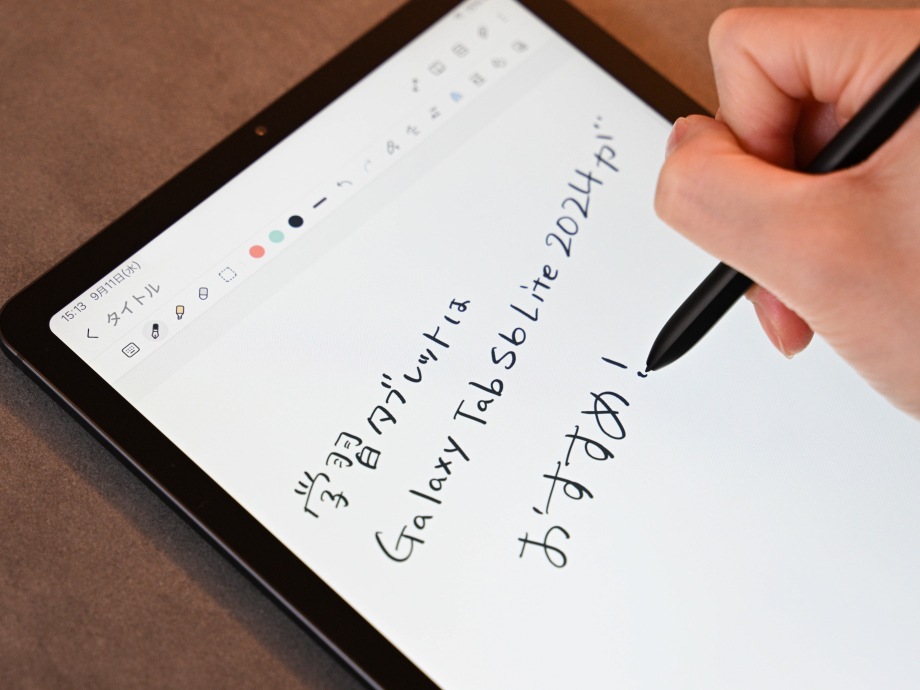 15:13 9月11日(水)
タイトル
学習タブレットは
Galaxy Tab S6 Lite 2024が
おすすめ!